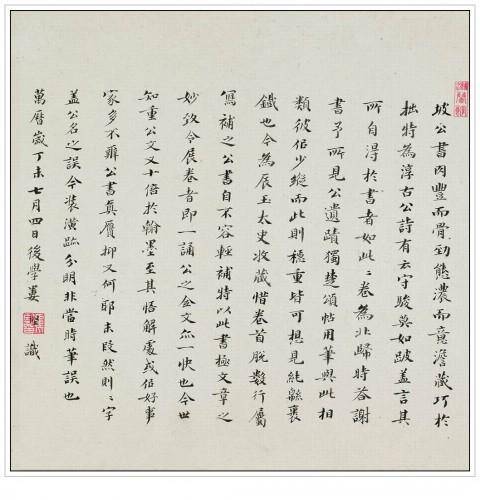 坡公書肉豐而骨勁態濃而意澹藏巧於
拙特為淳古公詩有云守駿莫如跛蓋言其
所自得於書者如此〻卷為北歸時荅謝
書予所見公遺蹟獨楚頌帖用筆與此相
類彼似少縱而此則穩重皆可想見純緜裹
鐵也今為辰玉太史收藏惜卷首脫數行屬
寫補之公書自不容輕補特以此書極文章之
妙故令展卷者即一誦公之全文亦一快也今世
知重公文又十倍於翰墨至其悟解處或似好事
家多不辨公書真贗抑又何耶末段然則〻字
盖公名之誤今裝潢跡分明非當時筆誤也
萬曆歲丁未七月四日後學婁堅識